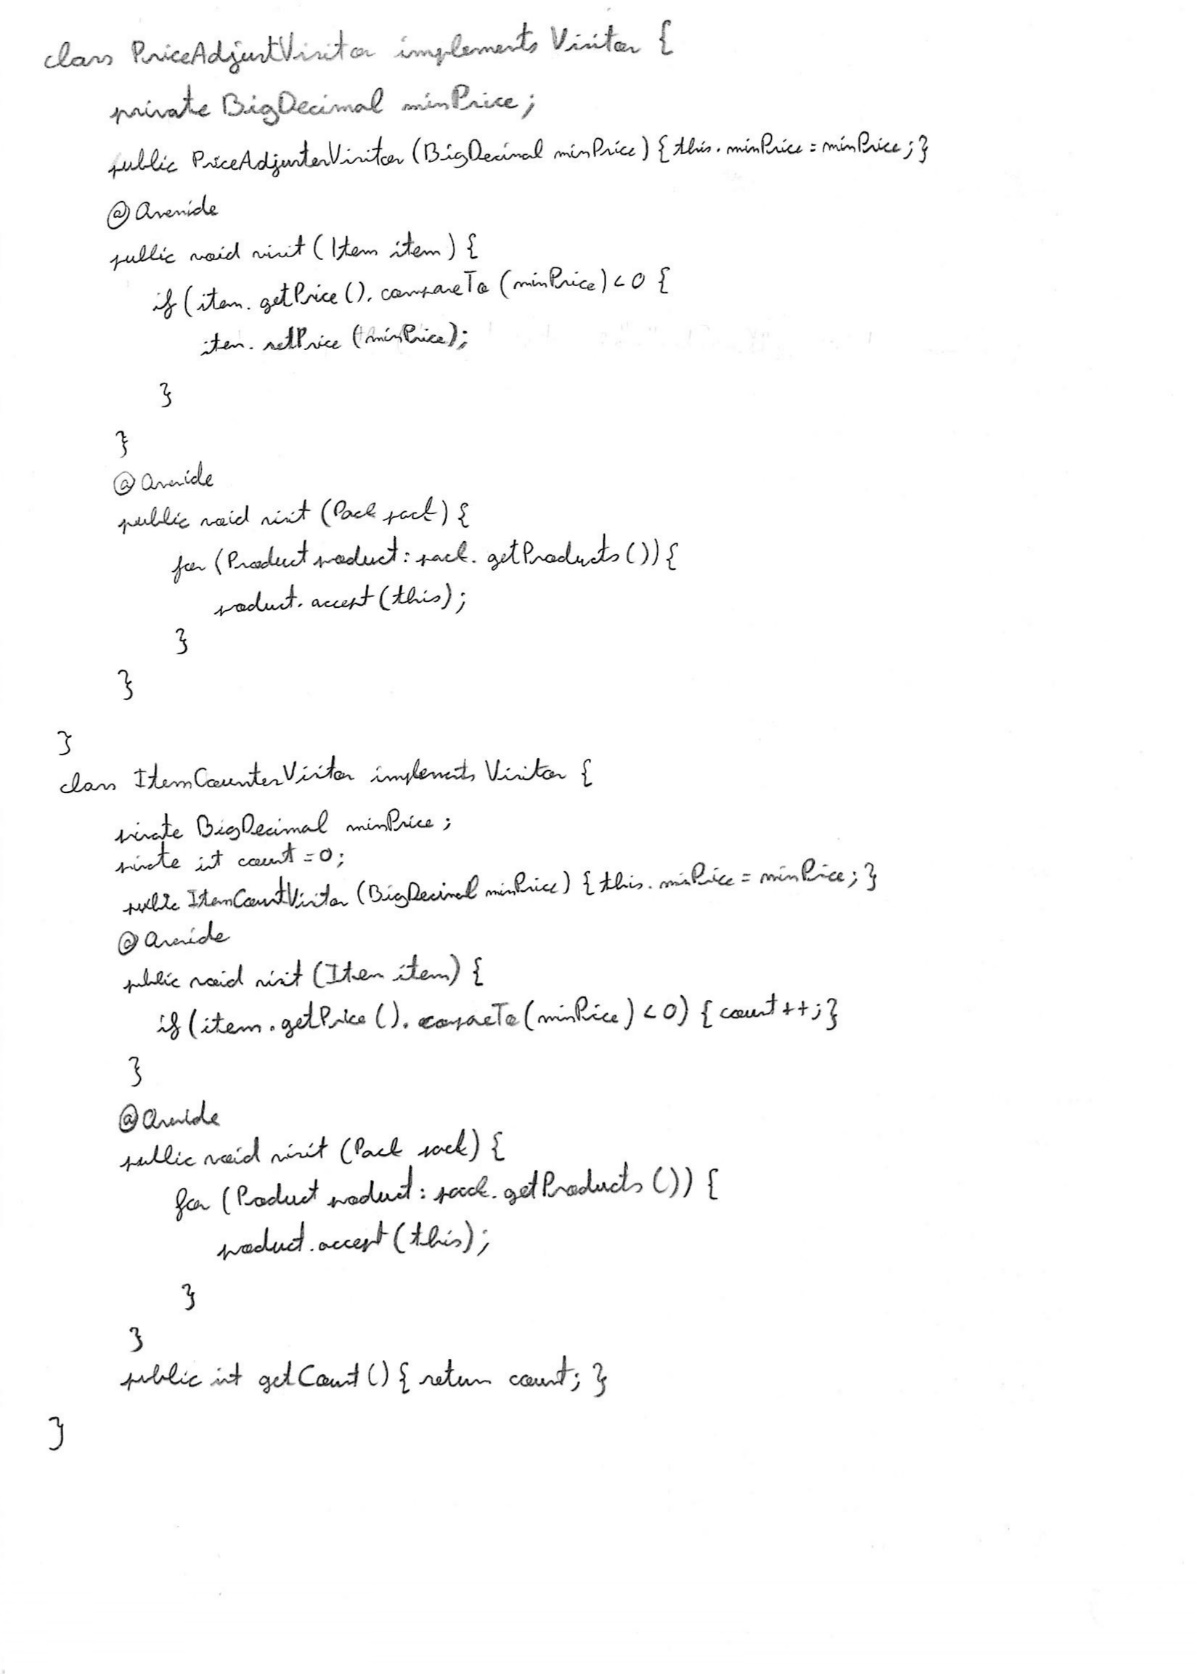 class PriceAdjustVisitor implements Visitor {
private BigDecimal minPrice;
public PriceAdjusterVisitor (BigDecimal minPrice) { this.minPrice = minPrice; }
@Override
public void visit (Item item) {
if (item.getPrice().compareTo (minPrice) < 0 {
item.setPrice (minPrice);
}
}
@Override
public void visit (Pack pack) {
for (Product product : pack.getProducts ()) {
product.accept (this);
}
}
}
class ItemCounterVisitor implements Visitor {
private BigDecimal minPrice;
private int count = 0;
public ItemCountVisitor (BigDecimal minPrice) { this.minPrice = minPrice; }
@Override
public void visit (Item item) {
if (item.getPrice().compareTo (minPrice) < 0) { count++; }
}
@Override
public void visit (Pack pack) {
for (Product product : pack.getProducts ()) {
product.accept (this);
}
}
public int getCount () { return count; }
}